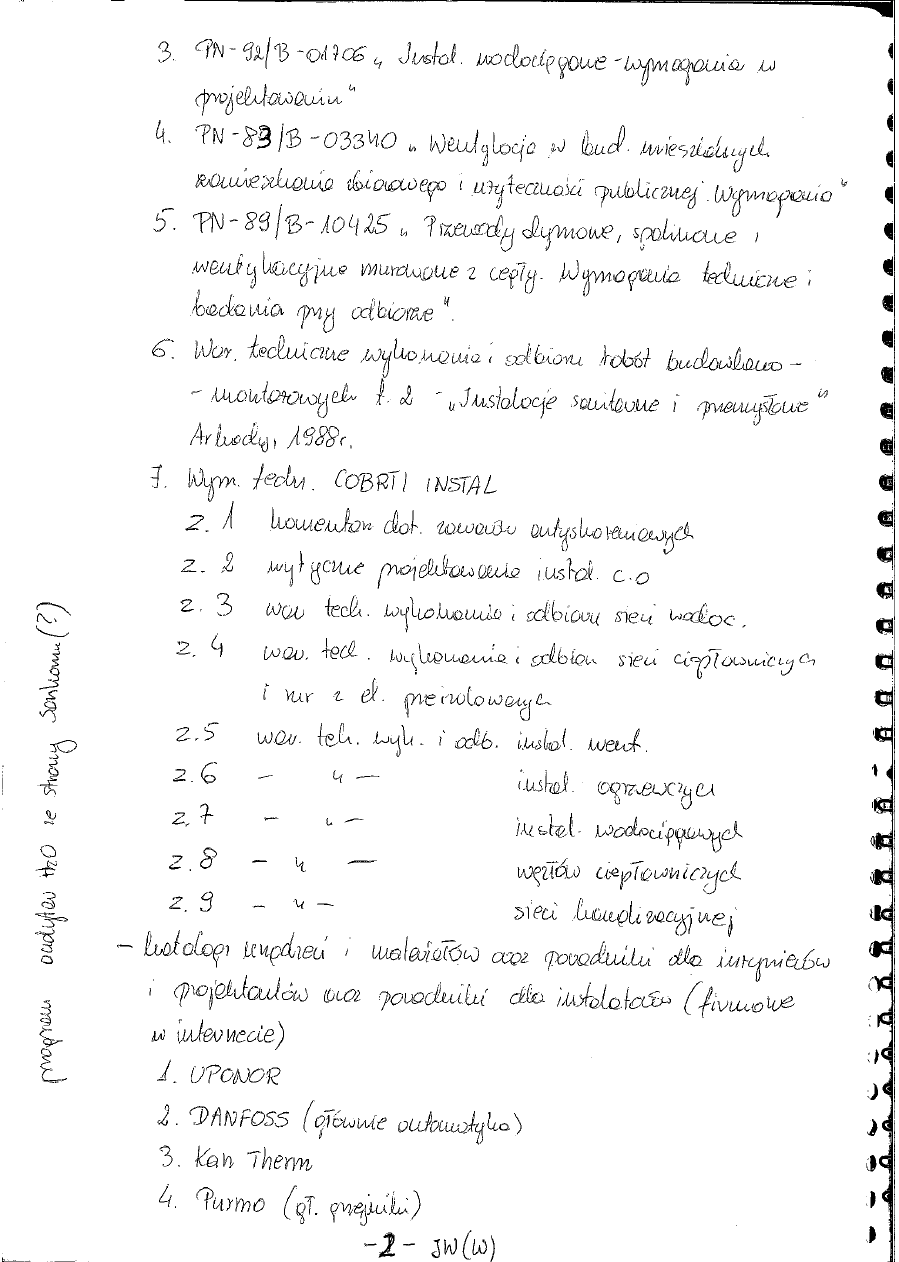 3. PN-92/B-01706 „Instal. wodociągowe - wymagania w
projektowaniu"
4. PN-83/B-03340 „Wentylacja w bud. mieszkalnych
zamieszkania zbiorowego i użyteczności publicznej. Wymagania"
5. PN-89/B-10425 „Przewody dymowe, spalinowe i
wentylacyjne murowane z cegły. Wymagania techniczne i
badania przy odbiorze".
6. War. techniczne wykonania i odbioru robót budowlano -
- montażowych t. 2 - „Instalacje sanitarne i przemysłowe"
Arkady, 1988r.
7. Wym. techn. COBRTI INSTAL
z. 1 komentarz dot. zaworów antyskażeniowych
z. 2 wytyczne projektowania instal. c.o
z. 3 war. tech. wykonania i odbioru sieci wodoc.
z. 4 war. tech. wykonania i odbioru sieci ciepłowniczych
i rur z el. preizolowanych
z.5 war. tech. wyk. i odb. instal. went.
z.6 - " - instal. ogrzewczych
z.7 - " - instal. wodociągowych
z.8 - " - węzłów ciepłowniczych
z.9 - " - sieci kanalizacyjnej
- katalogi urządzeń i materiałów oraz poradniki dla inżynierów
i projektantów oraz poradniki dla instalatorów (firmowe
w internecie)
1. UPONOR
2. DANFOSS (głównie automatyka)
3. Kan Therm
4. Purmo (gł. grzejniki)
-2- JW(W)
program audytor H2O ze strony Sankomu(?)